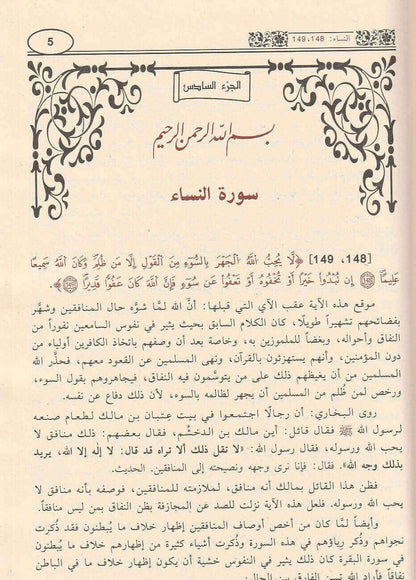 النساء: 148، 149
5
الجزء السادس
بسم الله الرحمن الرحيم
سورة النساء
[148، 149] ﴿لَّا يُحِبُّ اللَّهُ الْجَهْرَ بِالسُّوءِ مِنَ الْقَوْلِ إِلَّا مَن ظُلِمَ وَكَانَ اللَّهُ سَمِيعًا
عَلِيمًا ﴿١٤٨﴾ إِن تُبْدُوا خَيْرًا أَوْ تُخْفُوهُ أَوْ تَعْفُوا عَن سُوءٍ فَإِنَّ اللَّهَ كَانَ عَفُوًّا قَدِيرًا ﴿١٤٩﴾﴾
موقع هذه الآية عقب الآي التي قبلها: أنّ الله لمّا شوّه حال المنافقين وشهّر
بفضائحهم تشهيراً طويلاً، كان الكلام السابق بحيث يثير في نفوس السامعين نفوراً من
النفاق وأحواله، وبغضاً للملموزين به، وخاصة بعد أن وصفهم باتخاذ الكافرين أولياء من
دون المؤمنين، وأنهم يستهزئون بالقرآن، ونهى المسلمين عن القعود معهم، فحذَّر الله
المسلمين من أن يغيظهم ذلك على من يتوسَّمون فيه النفاق، فيجاهروهم بقول السوء،
ورخص لمن ظُلم من المسلمين أن يجهر لظالمه بالسوء، لأن ذلك دفاع عن نفسه.
روى البخاري: أن رجالاً اجتمعوا في بيت عتبان بن مالك لطعام صنعه
لرسول الله ﷺ فقال قائل: أين مالك بن الدخشم، فقال بعضهم: ذلك منافق لا
يحب الله ورسوله، فقال رسول الله: «لا تقل ذلك ألا تراه قد قال: لا إله إلا الله، يريد
بذلك وجه الله». فقال: فإنا نرى وجهه ونصيحته إلى المنافقين. الحديث.
فظن هذا القائل بمالك أنه منافق، لملازمته للمنافقين، فوصفه بأنه منافق لا
يحب الله ورسوله. فلعل هذه الآية نزلت للصد عن المجازفة بظن النفاق بمن ليس منافقاً.
وأيضاً لمّا كان من أخص أوصاف المنافقين إظهار خلاف ما يُبطنون فقد ذُكرت
نجواهم وذُكر رياؤهم في هذه السورة وذُكرت أشياء كثيرة من إظهارهم خلاف ما يبطنون
في سورة البقرة كان ذلك يثير في النفوس خشية أن يكون إظهار خلاف ما في الباطن
نفاقاً فأراد الله تبين الفارق بين الحالين.